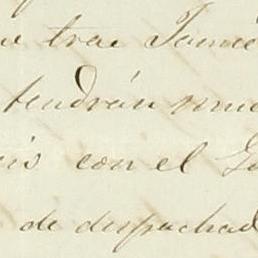 trae Jamie
tendrán muc
con el G
de despachad